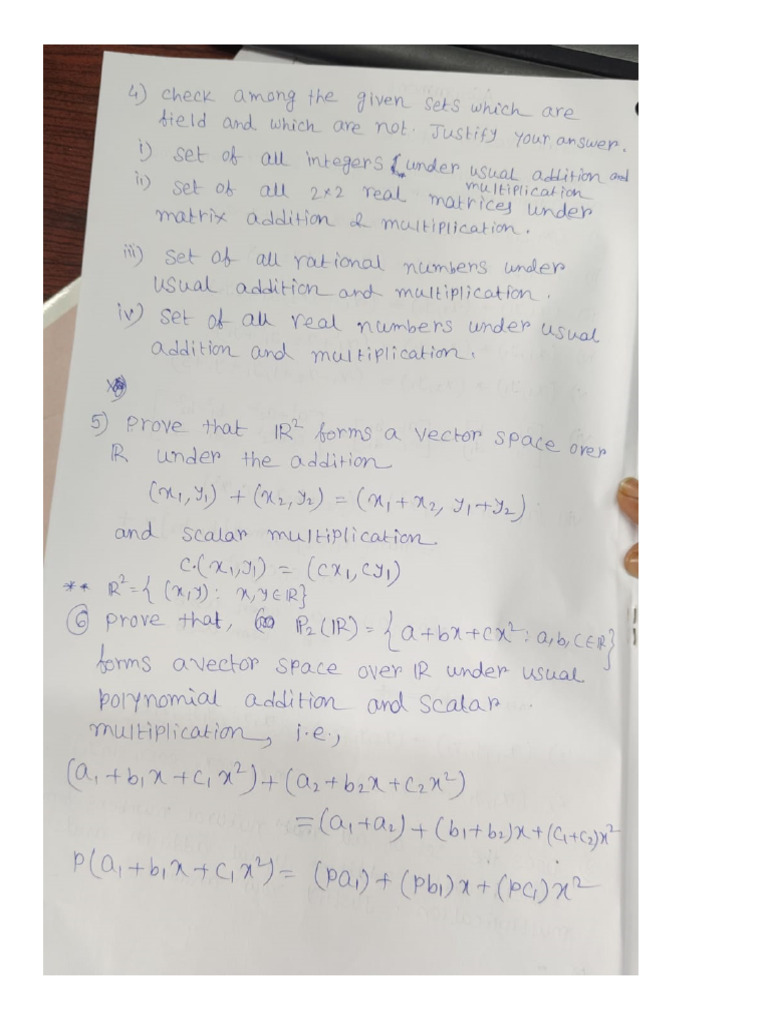 4) check among the given sets which are
field and which are not. Justify your answer.
i) set of all integers (under usual addition and
multiplication
ii) set of all 2×2 real matrices under
matrix addition & multiplication.
iii) set of all rational numbers under
usual addition and multiplication.
iv) set of all real numbers under usual
addition and multiplication.
5) prove that ℝ² forms a vector space over
ℝ under the addition
(x₁,y₁) + (x₂,y₂) = (x₁+x₂, y₁+y₂)
and scalar multiplication.
c.(x₁,y₁) = (cx₁,cy₁)
** ℝ²={ (x,y): x,y∈ℝ}
⑥ prove that, P₂(ℝ)={a+bx+cx²: a,b,c∈ℝ}
forms a vector space over ℝ under usual
polynomial addition and scalar
multiplication, i.e.,
(a₁+b₁x+c₁x²)+(a₂+b₂x+c₂x²)
=(a₁+a₂)+(b₁+b₂)x+(c₁+c₂)x²
p(a₁+b₁x+c₁x²)= (pa₁)+(pb₁)x+(pc₁)x²